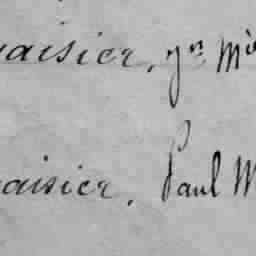 aisier, Jn Mi
aisier, Paul M